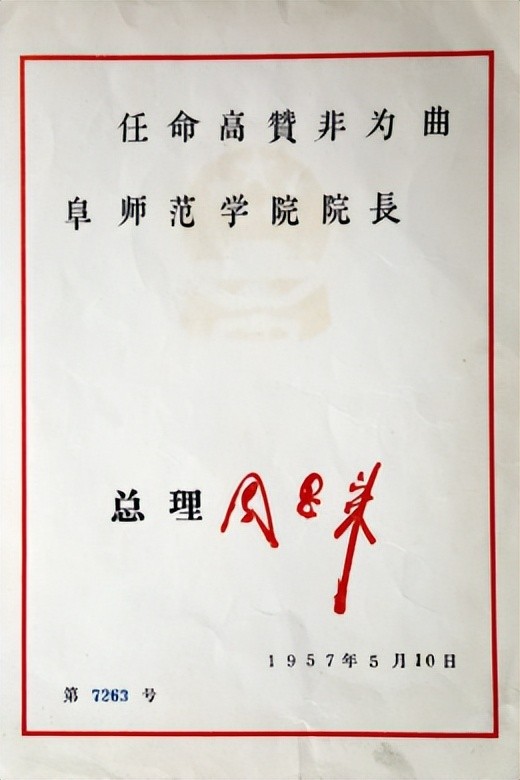 任命高贊非为曲
阜师范学院院長
总理 周恩来
1957年5月10日
第 7263 号